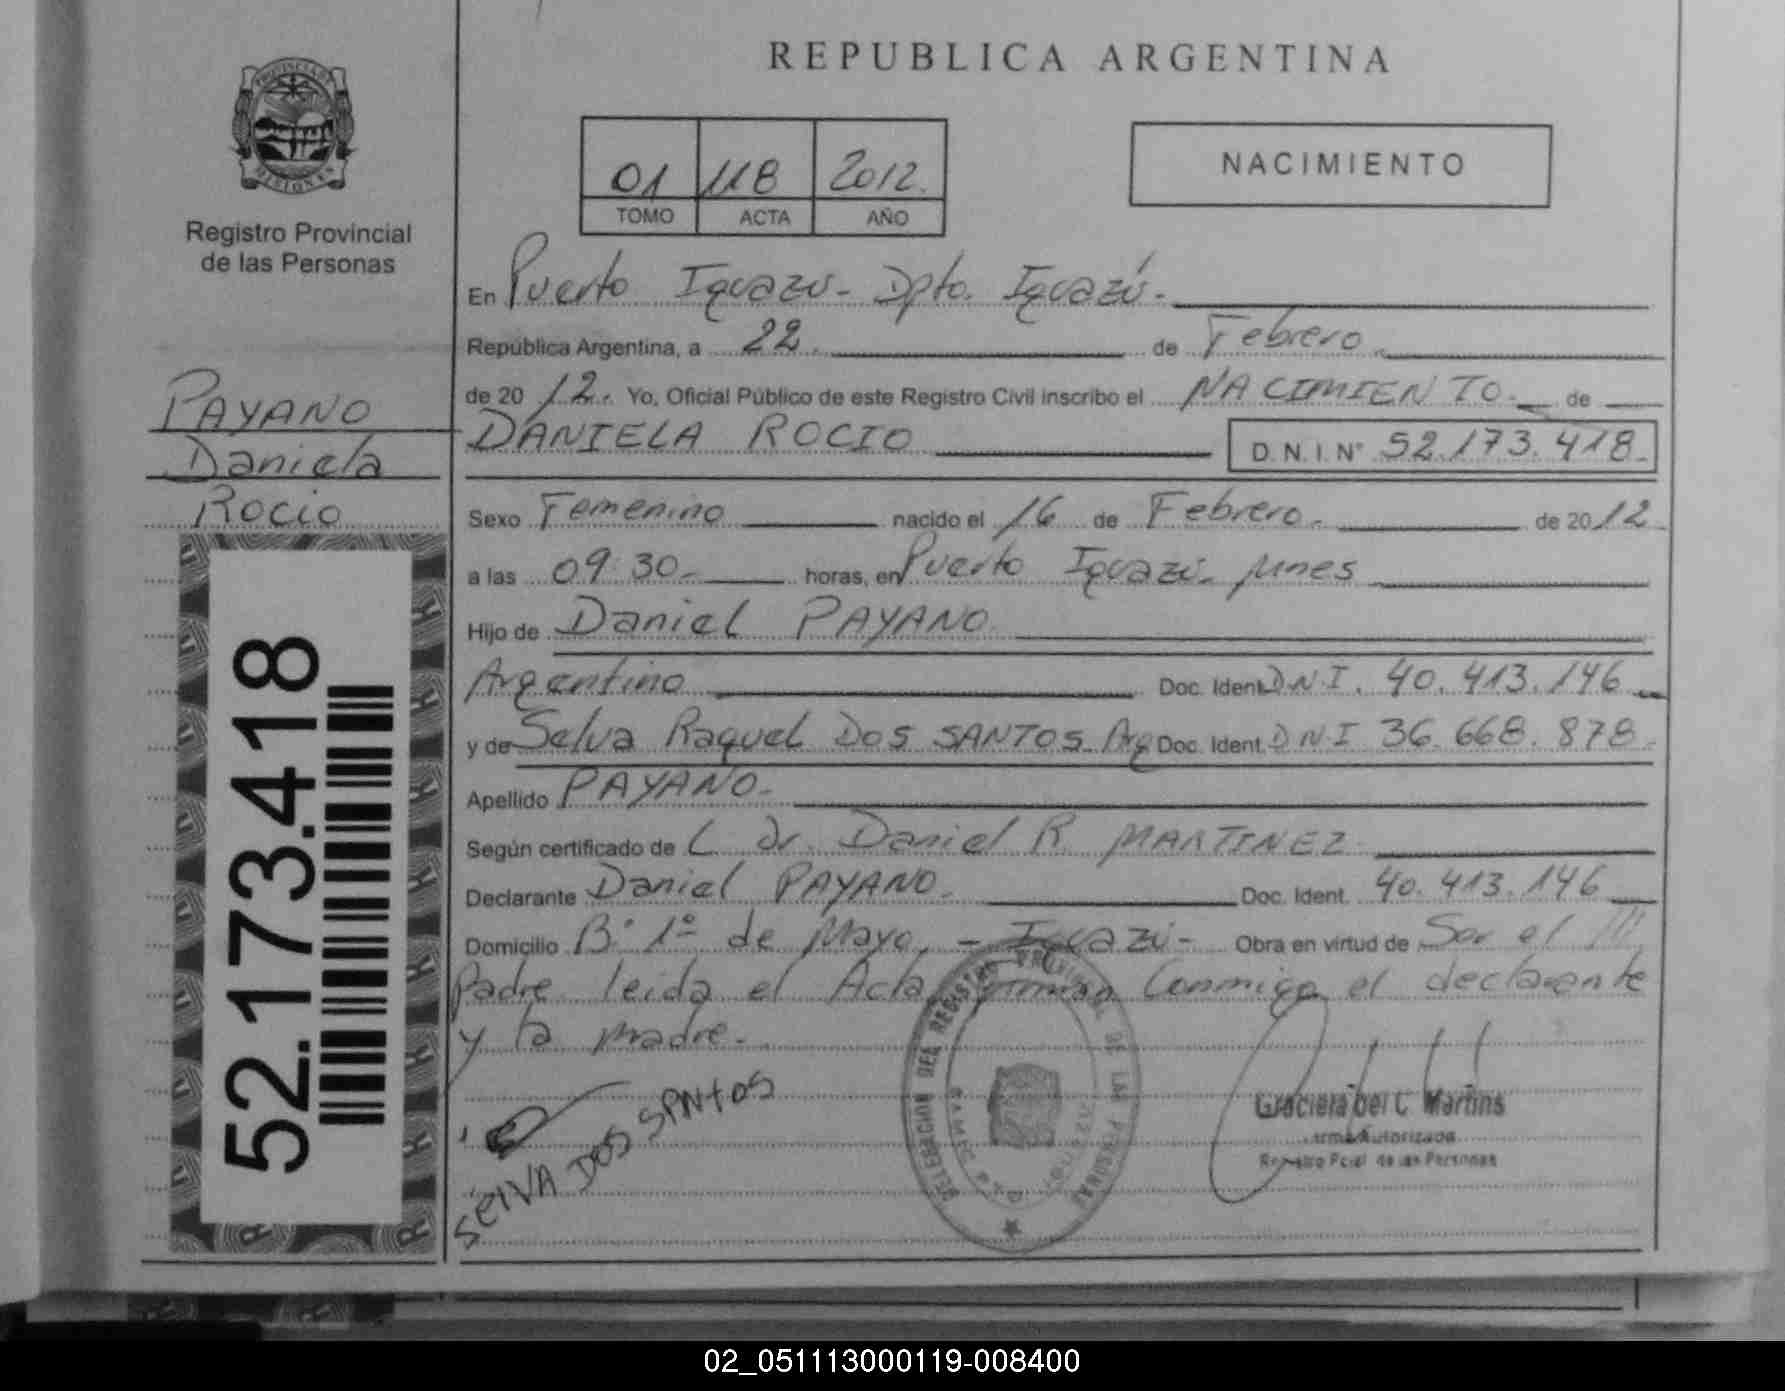 REPUBLICA ARGENTINA
PROVINCIA DE
MISIONES
Registro Provincial
de las Personas
01 118 2012.
TOMO ACTA AÑO
NACIMIENTO
En Puerto Iguazú - Dpto. Iguazú -
República Argentina, a 22. de Febrero
de 20 12. Yo, Oficial Público de este Registro Civil inscribo el NACIMIENTO. de
DANIELA ROCIO D.N.I. Nº 52.173.418
Sexo Femenino nacido el 16 de Febrero. de 20 12
a las 09:30 horas, en Puerto Iguazú
Hijo de Daniel PAYANO
Argentino Doc. Ident. DNI. 40.413.146
y de Selva Raquel DOS SANTOS Arg Doc. Ident. DNI 36.668.878
Apellido PAYANO
Según certificado de L Dr. Daniel R. MARTINEZ
Declarante Daniel PAYANO. Doc. Ident. 40.413.146
Domicilio Bº 1º de Mayo, - Iguazú - Obra en virtud de Ser el
Padre leida el Acta firman Conmigo el declarante
y la madre.
SElVA DOS SANtOS
DELEGACION DEL REGISTRO PROVINCIAL DE LAS PERSONAS
Graciela del C. Martins
Firma Autorizada
Registro Pcial de las Personas
PAYANO
Daniela
Rocio
52.173.418
02_051113000119-008400